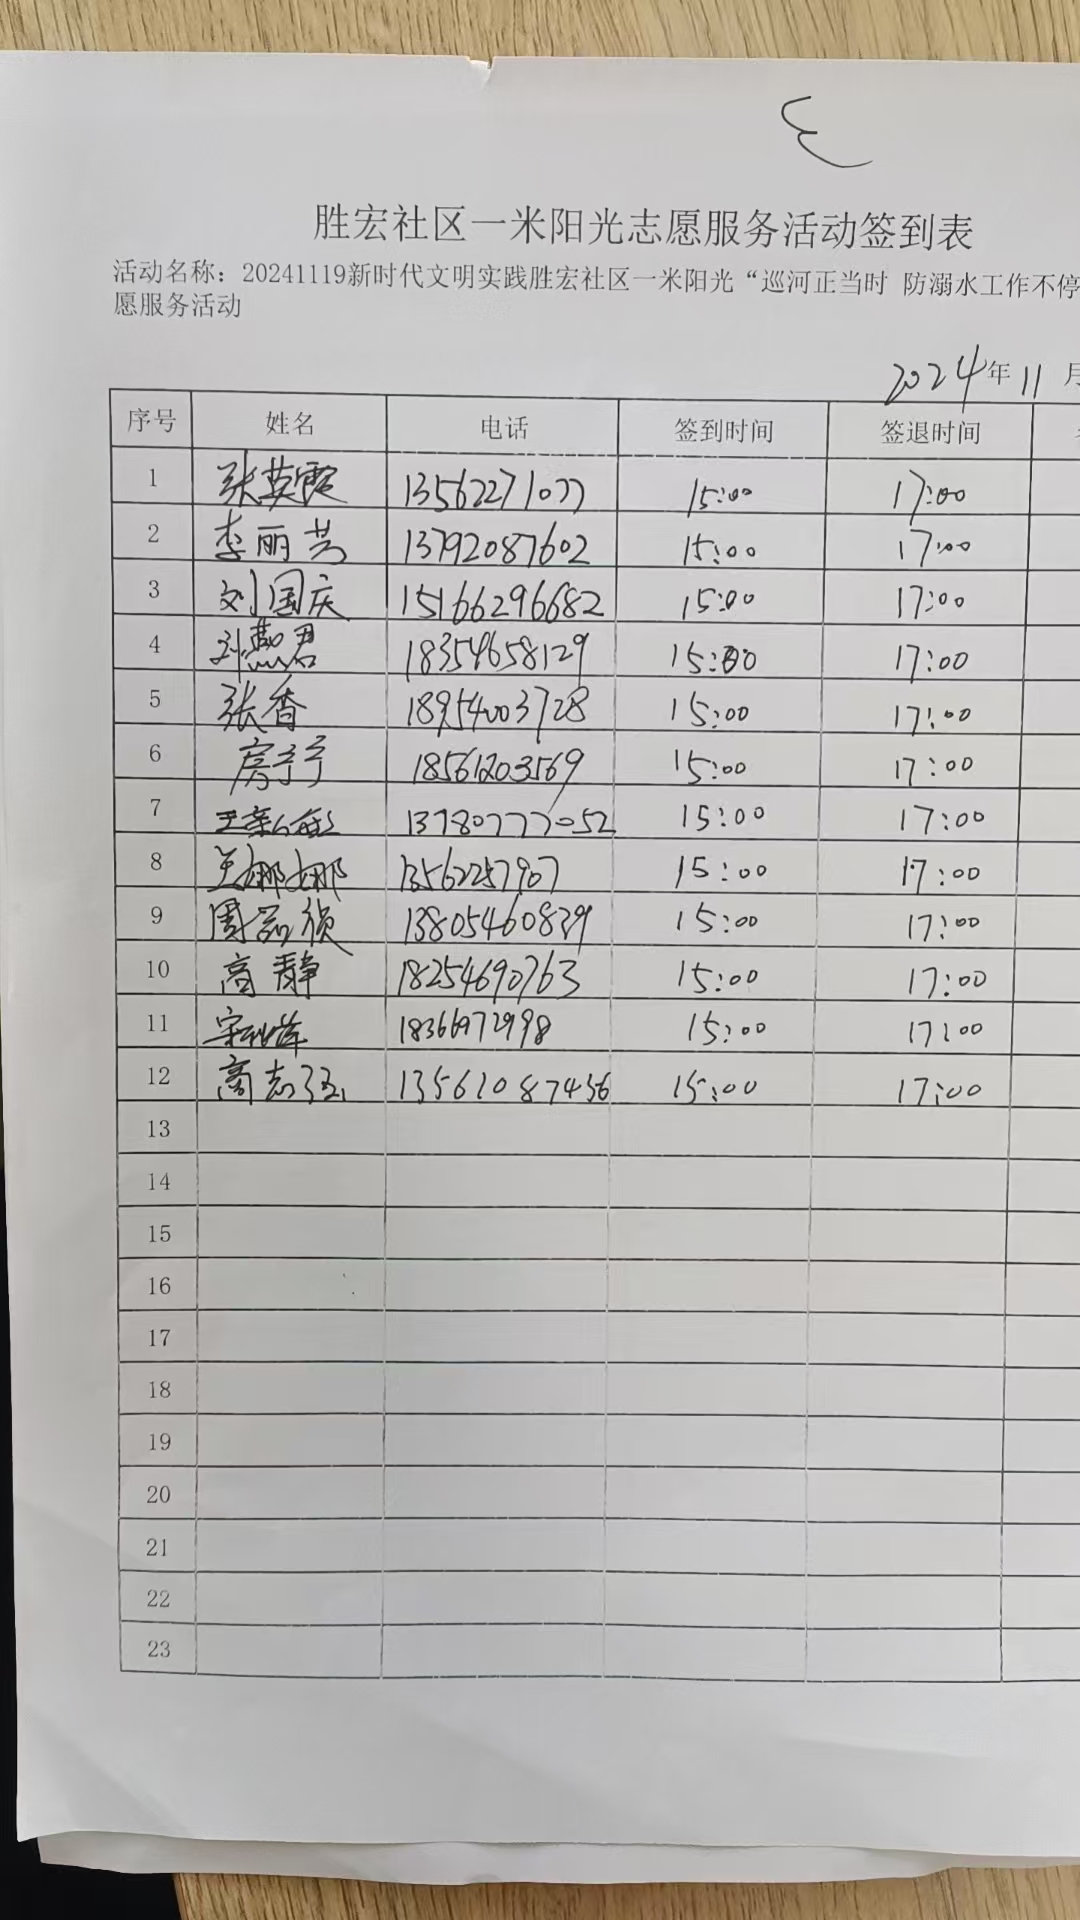 胜宏社区一米阳光志愿服务活动签到表
活动名称：20241119新时代文明实践胜宏社区一米阳光“巡河正当时 防溺水工作不停
愿服务活动
2024年 11 月
序号 姓名 电话 签到时间 签退时间
1 张英霞 13562271077 15:00 17:00
2 李丽芸 13792087602 15:00 17:00
3 刘国庆 15166296682 15:00 17:00
4 刘燕君 18354658129 15:00 17:00
5 张香 18954003728 15:00 17:00
6 房宁宁 18561203569 15:00 17:00
7 13780777052 15:00 17:00
8 兰娜娜 13562257907 15:00 17:00
9 周 13805460839 15:00 17:00
10 高静 18254690763 15:00 17:00
11 18366972998 15:00 17:00
12 高志 13561087456 15:00 17:00
13
14
15
16
17
18
19
20
21
22
23